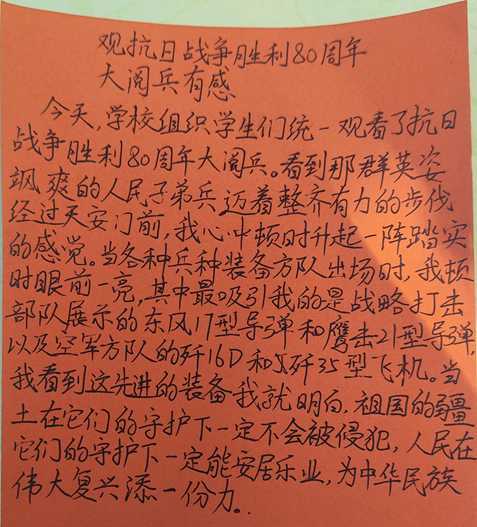 观抗日战争胜利80周年
大阅兵有感
今天,学校组织学生们统一观看了抗日
战争胜利80周年大阅兵。看到那群英姿
飒爽的人民子弟兵迈着整齐有力的步伐
经过天安门前,我心中顿时升起一阵踏实
的感觉。当各种兵种装备方队出场时,我顿
时眼前一亮,其中最吸引我的是战略打击
部队展示的东风17型导弹和鹰击21型导弹,
以及空军方队的歼16D和歼35型飞机。当
我看到这先进的装备我就明白,祖国的疆
土在它们的守护下一定不会被侵犯,人民在
它们的守护下一定能安居乐业,为中华民族
伟大复兴添一份力。